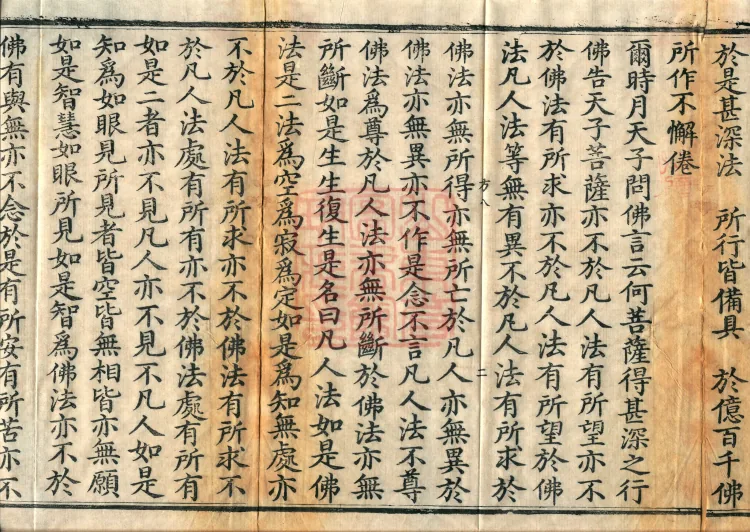 於是甚深法　所行皆備具　於億百千佛
所作不懈倦
爾時月天子問佛言云何菩薩得甚深之行
佛告天子菩薩亦不於凡人法有所望亦不
於佛法有所求亦不於凡人法有所望於佛
法凡人法等無有異不於凡人法有所求於
方八　二
佛法亦無所得亦無所亡於凡人亦無異於
佛法亦無異亦不作是念不言凡人法不尊
佛法為尊於凡人法亦無所斷於佛法亦無
所斷如是生生復生是名曰凡人法如是佛
法是二法為空為寂為定如是為知無處亦
不於凡人法有所求亦不於佛法有所求不
於凡人法處有所有亦不於佛法處有所有
如是二者亦不見凡人亦不見不凡人如是
知為如眼見所見者皆空皆無相皆亦無願
如是智慧如眼所見如是智為佛法亦不於
佛有與無亦不念於是有所安有所苦亦不